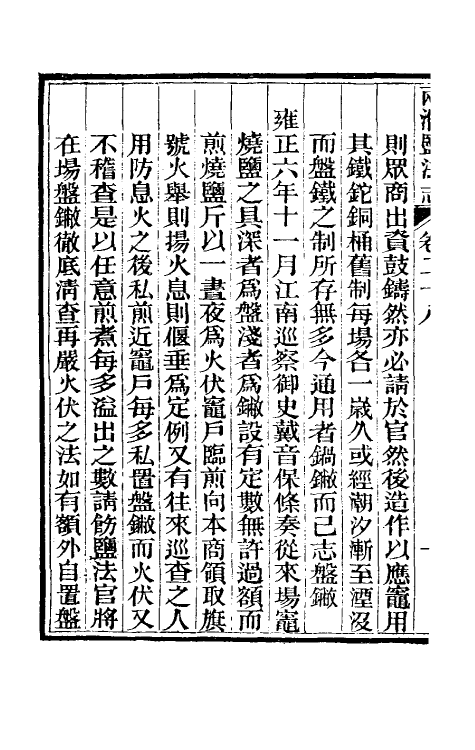 兩淮鹽法志 卷二十八 一
則眾商出資鼓鑄然亦必請於官然後造作以應竈用
其鐵鉈銅桶舊制每場各一歲久或經潮汐漸至湮沒
而盤鐵之制所存無多今通用者鍋鐅而已志盤鐅
雍正六年十一月江南巡察御史戴音保條奏從來場竈
燒鹽之具深者為盤淺者為鐅設有定數無許過額而
煎燒鹽斤以一晝夜為火伏竈戶臨煎向本商領取旗
號火舉則揚火息則偃垂為定例又有往來巡查之人
用防息火之後私煎近竈戶每多私置盤鐅而火伏又
不稽查是以任意煎煮每多溢出之數請飭鹽法官將
在場盤鐅徹底清查再嚴火伏之法如有額外自置盤